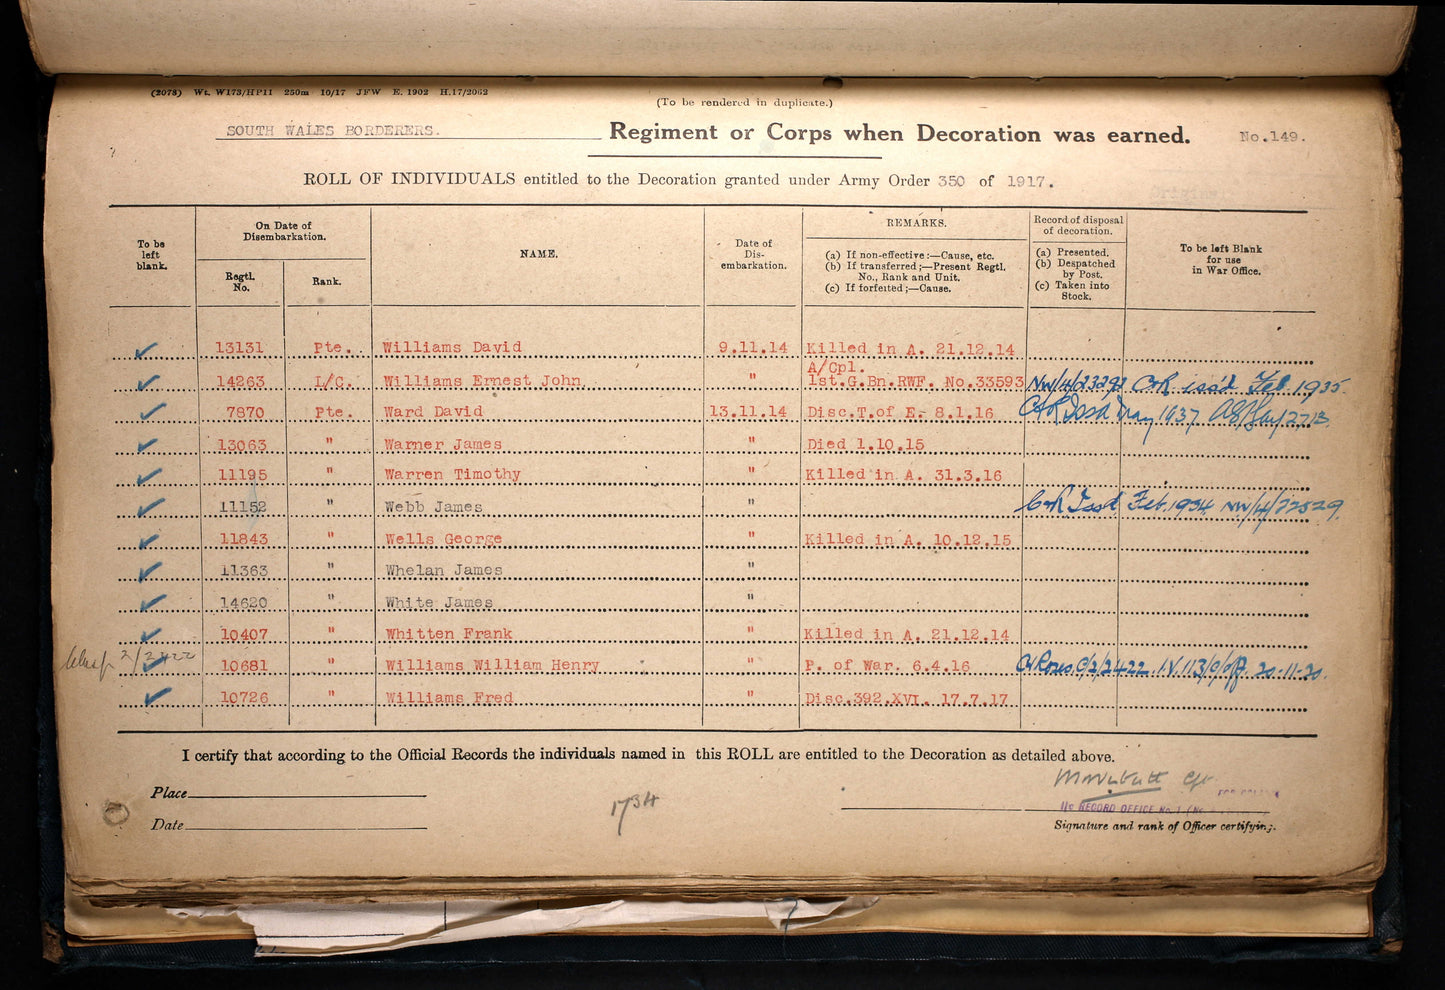 (2078) Wt. W173/HP11 250m 10/17 JFW E. 1902 H.17/2062
(To be rendered in duplicate.)
SOUTH WALES BORDERERS. Regiment or Corps when Decoration was earned. No.149.
ROLL OF INDIVIDUALS entitled to the Decoration granted under Army Order 350 of 1917.
To be left blank.
On Date of Disembarkation.
Regtl. No.
Rank.
NAME.
Date of Dis-embarkation.
REMARKS.
(a) If non-effective :—Cause, etc.
(b) If transferred ;—Present Regtl. No., Rank and Unit.
(c) If forfeited ;—Cause.
Record of disposal of decoration.
(a) Presented.
(b) Despatched by Post.
(c) Taken into Stock.
To be left Blank for use in War Office.
13131 Pte. Williams David 9.11.14 Killed in A. 21.12.14
A/Cpl.
14263 L/C. Williams Ernest John. " 1st.G.Bn.RWF. No.33593 NW/4/23292 C&R iss'd Feb. 1935
7870 Pte. Ward David 13.11.14 Disc.T.of E. 8.1.16 C&R Issd May 1937
13063 " Warner James " Died 1.10.15
11195 " Warren Timothy " Killed in A. 31.3.16
11152 " Webb James " C&R Iss'd Feb. 1934 NW/4/22529
11843 " Wells George " Killed in A. 10.12.15
11363 " Whelan James "
14620 " White James "
10407 " Whitten Frank " Killed in A. 21.12.14
Clasp 2/2422 10681 " Williams William Henry " P. of War. 6.4.16 20-11-20.
10726 " Williams Fred " Disc.392.XVI. 17.7.17
I certify that according to the Official Records the individuals named in this ROLL are entitled to the Decoration as detailed above.
Place
1734
Date
I/c RECORD OFFICE No. 1
Signature and rank of Officer certifying.